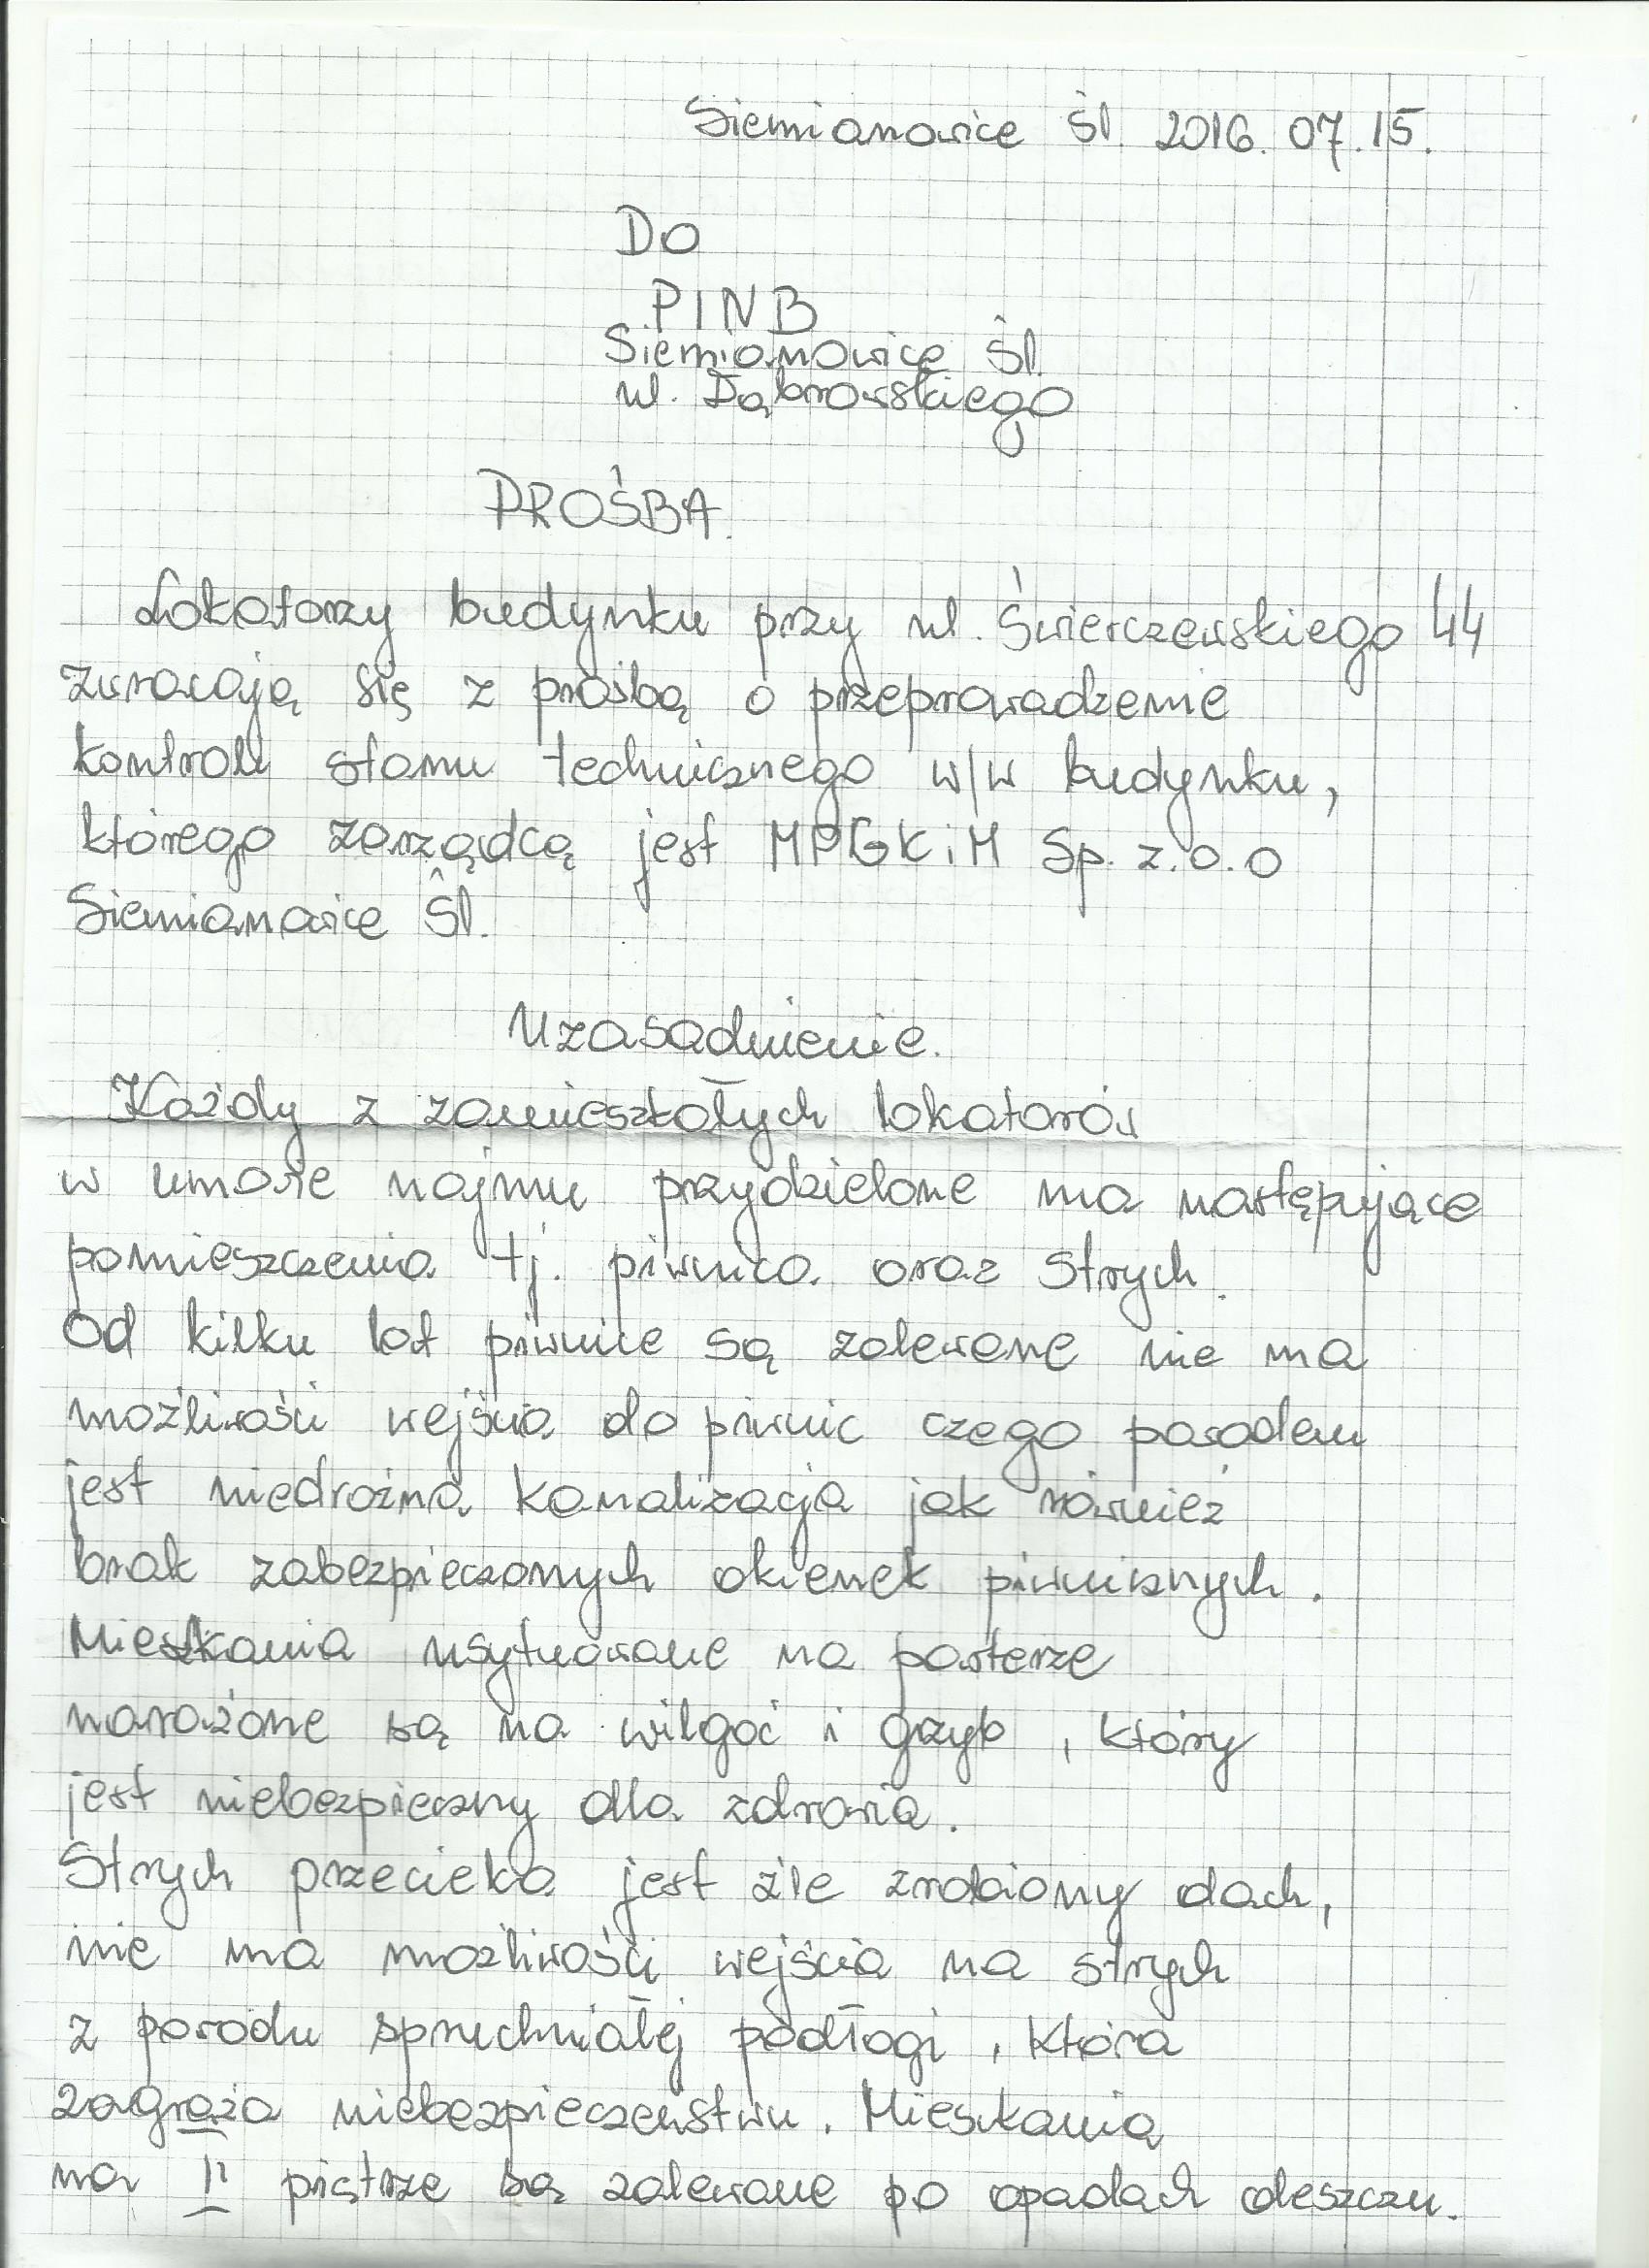 Siemianowice Śl. 2016.07.15.
Do
PINB
Siemianowice Śl.
ul. Dąbrowskiego
PROŚBA.
Lokatorzy budynku przy ul. Świerczewskiego 44
zwracają się z prośbą o przeprowadzenie
kontroli stanu technicznego w/w budynku,
którego zarządcą jest MPGKiM Sp. z.o.o
Siemianowice Śl.
Uzasadnienie.
Każdy z zamieszkałych lokatorów
w umowie najmu przydzielone ma następujące
pomieszczenia tj. piwnica oraz strych.
Od kilku lat piwnice są zalewane nie ma
możliwości wejścia do piwnic czego powodem
jest niedrożna kanalizacja jak również
brak zabezpieczonych okienek piwnicznych.
Mieszkania usytuowane na parterze
narażone są na wilgoć i grzyb, który
jest niebezpieczny dla zdrowia.
Strych przecieka jest źle zrobiony dach,
nie ma możliwości wejścia na strych
z powodu spruchniałej podłogi, która
zagraża niebezpieczeństwu. Mieszkania
na II piętrze są zalewane po opadach deszczu.